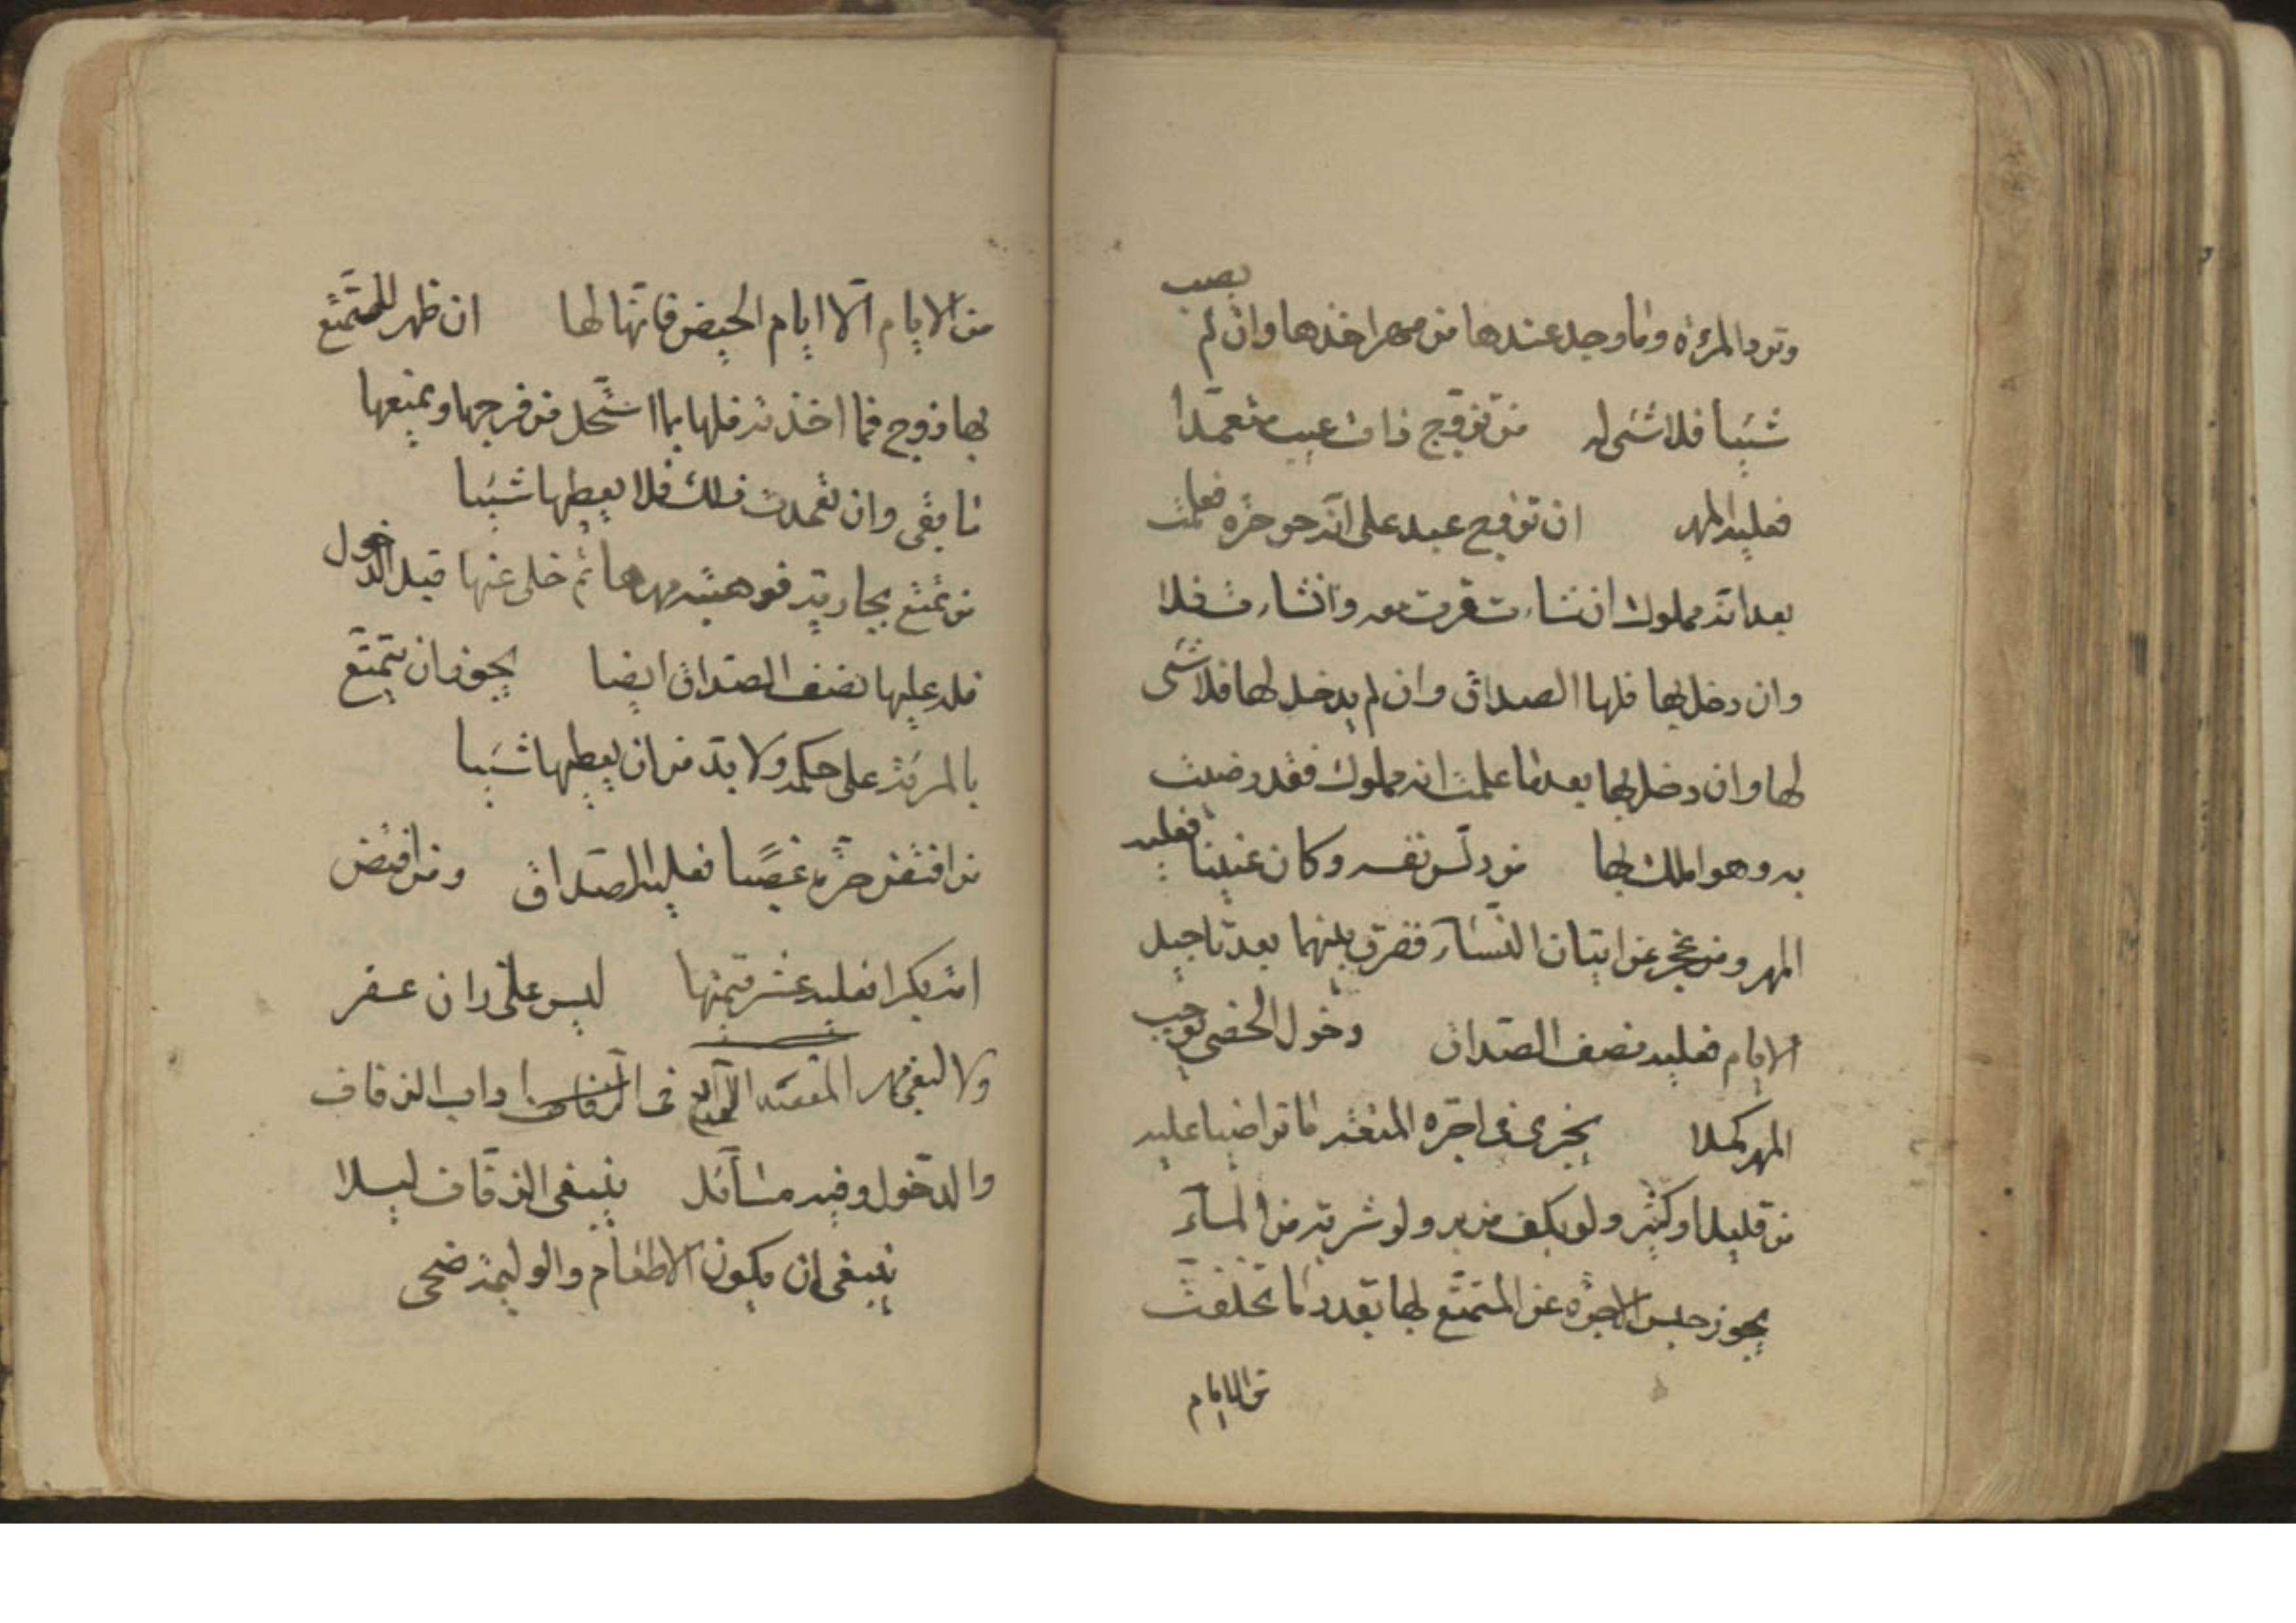 وترد المرءة وما وجد عندها من مهر اخذها وان لم يصب
شيئا فلا شئ له من تزوج ذات عيب متعمدا
فعليه المهر ان تزوج عبد على انه حر حرة فعلمت
بعد انه مملوك ان شاءت قرت معه وان شاءت فلا
وان دخل بها فلها الصداق وان لم يدخل بها فلا شئ
لها وان دخل بها بعد ما علمت انه مملوك فقد رضيت
به وهو املك بها من دلس نفسه وكان عنينا فعليه
المهر ومن عجز عن اتيان النساء ففرق بينهما بعد تاجيل
الايام فعليه نصف الصداق دخول الخصى يوجب
المهر كملا يجزى فى اجرة المتعة ما تراضيا عليه
من قليل او كثير ولو بكف من بر ولو شربة من الماء
يجوز حبس الاجرة عن المتمتع بها بقدر ما تخلفت
من الايام
من الايام الا ايام الحيض فانها لها ان ظهر للمتمتع
بها زوج فما اخذته فلها بما استحل من فرجها ويمنعها
ما بقى وان تعمدت ذلك فلا يعطيها شيئا
من تمتع بجارية فوهبته مهرها ثم خلى عنها قبل الدخول
فله عليها نصف الصداق ايضا يجوز ان يتمتع
بالمرئة على حكمه ولا بد من ان يعطيها شيئا
من افتض حرة غصبا فعليه الصداق ومن افتض
امة بكرا فعليه عشر قيمتها ليس على زان عقر
ولا لبغى مهر المقصد الرابع فى اداب الزفاف
والدخول وفيه مسائل ينبغى الزفاف ليلا
ينبغى ان يكون الاطعام والوليمة ضحى